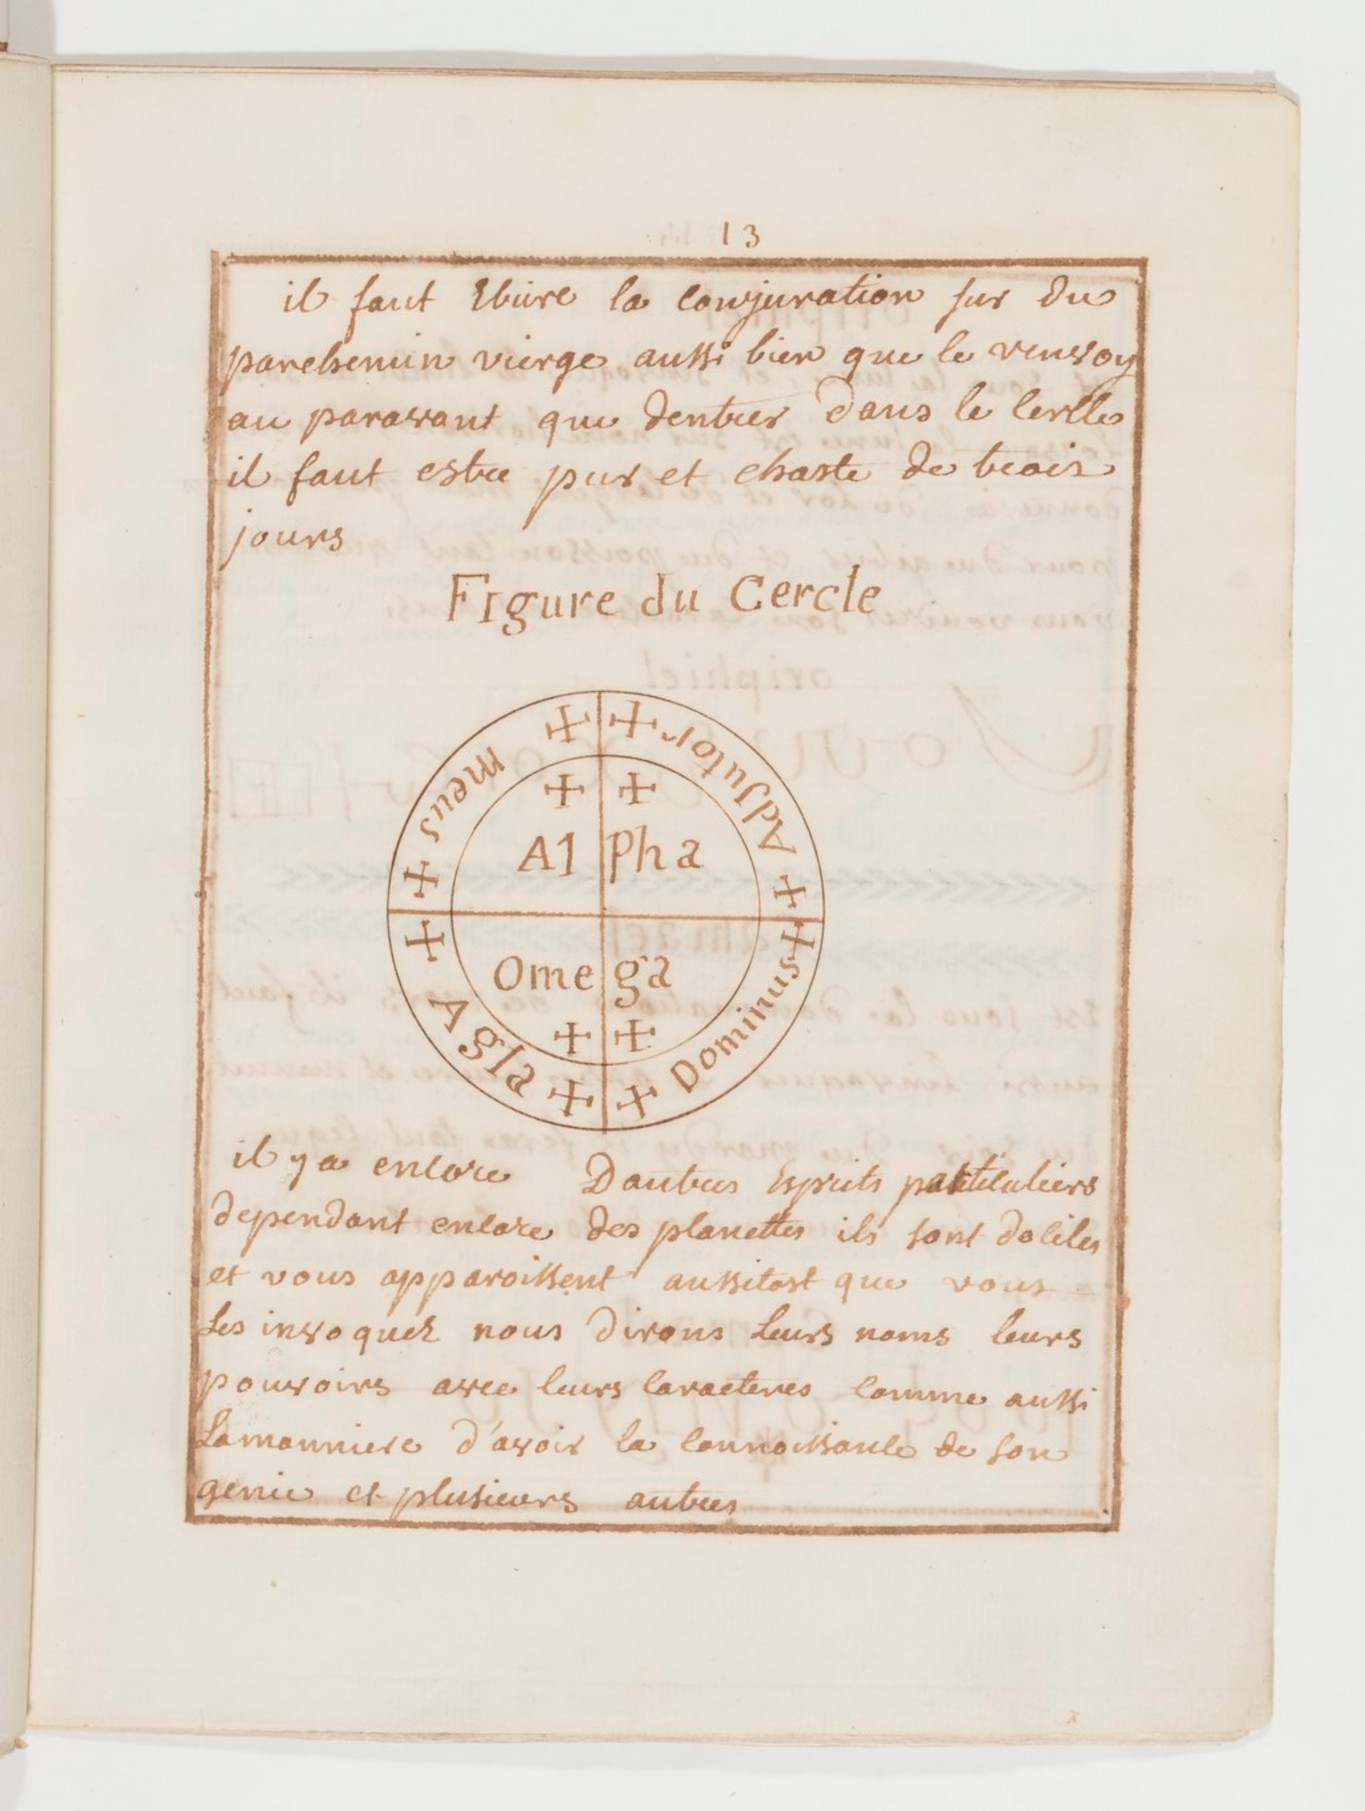 13
il faut Ecrire la conjuration sur du
parchemin vierge aussi bien que le renvoy
au paravant que dentrer dans le Cercle
il faut estre pur et chaste de trois
jours
Figure du Cercle
meus Adjutor
Al Pha
Ome ga
Agla Dominus
il y a encore Dautres Esprits particuliers
dependant encore des planettes ils sont dociles
et vous apparoissent aussitost que vous
Les invoquez nous dirons Leurs noms leurs
pouvoirs avec leurs caracteres comme aussi
Lamanniere d'avoir la connoissance de son
genie et plusieurs autres